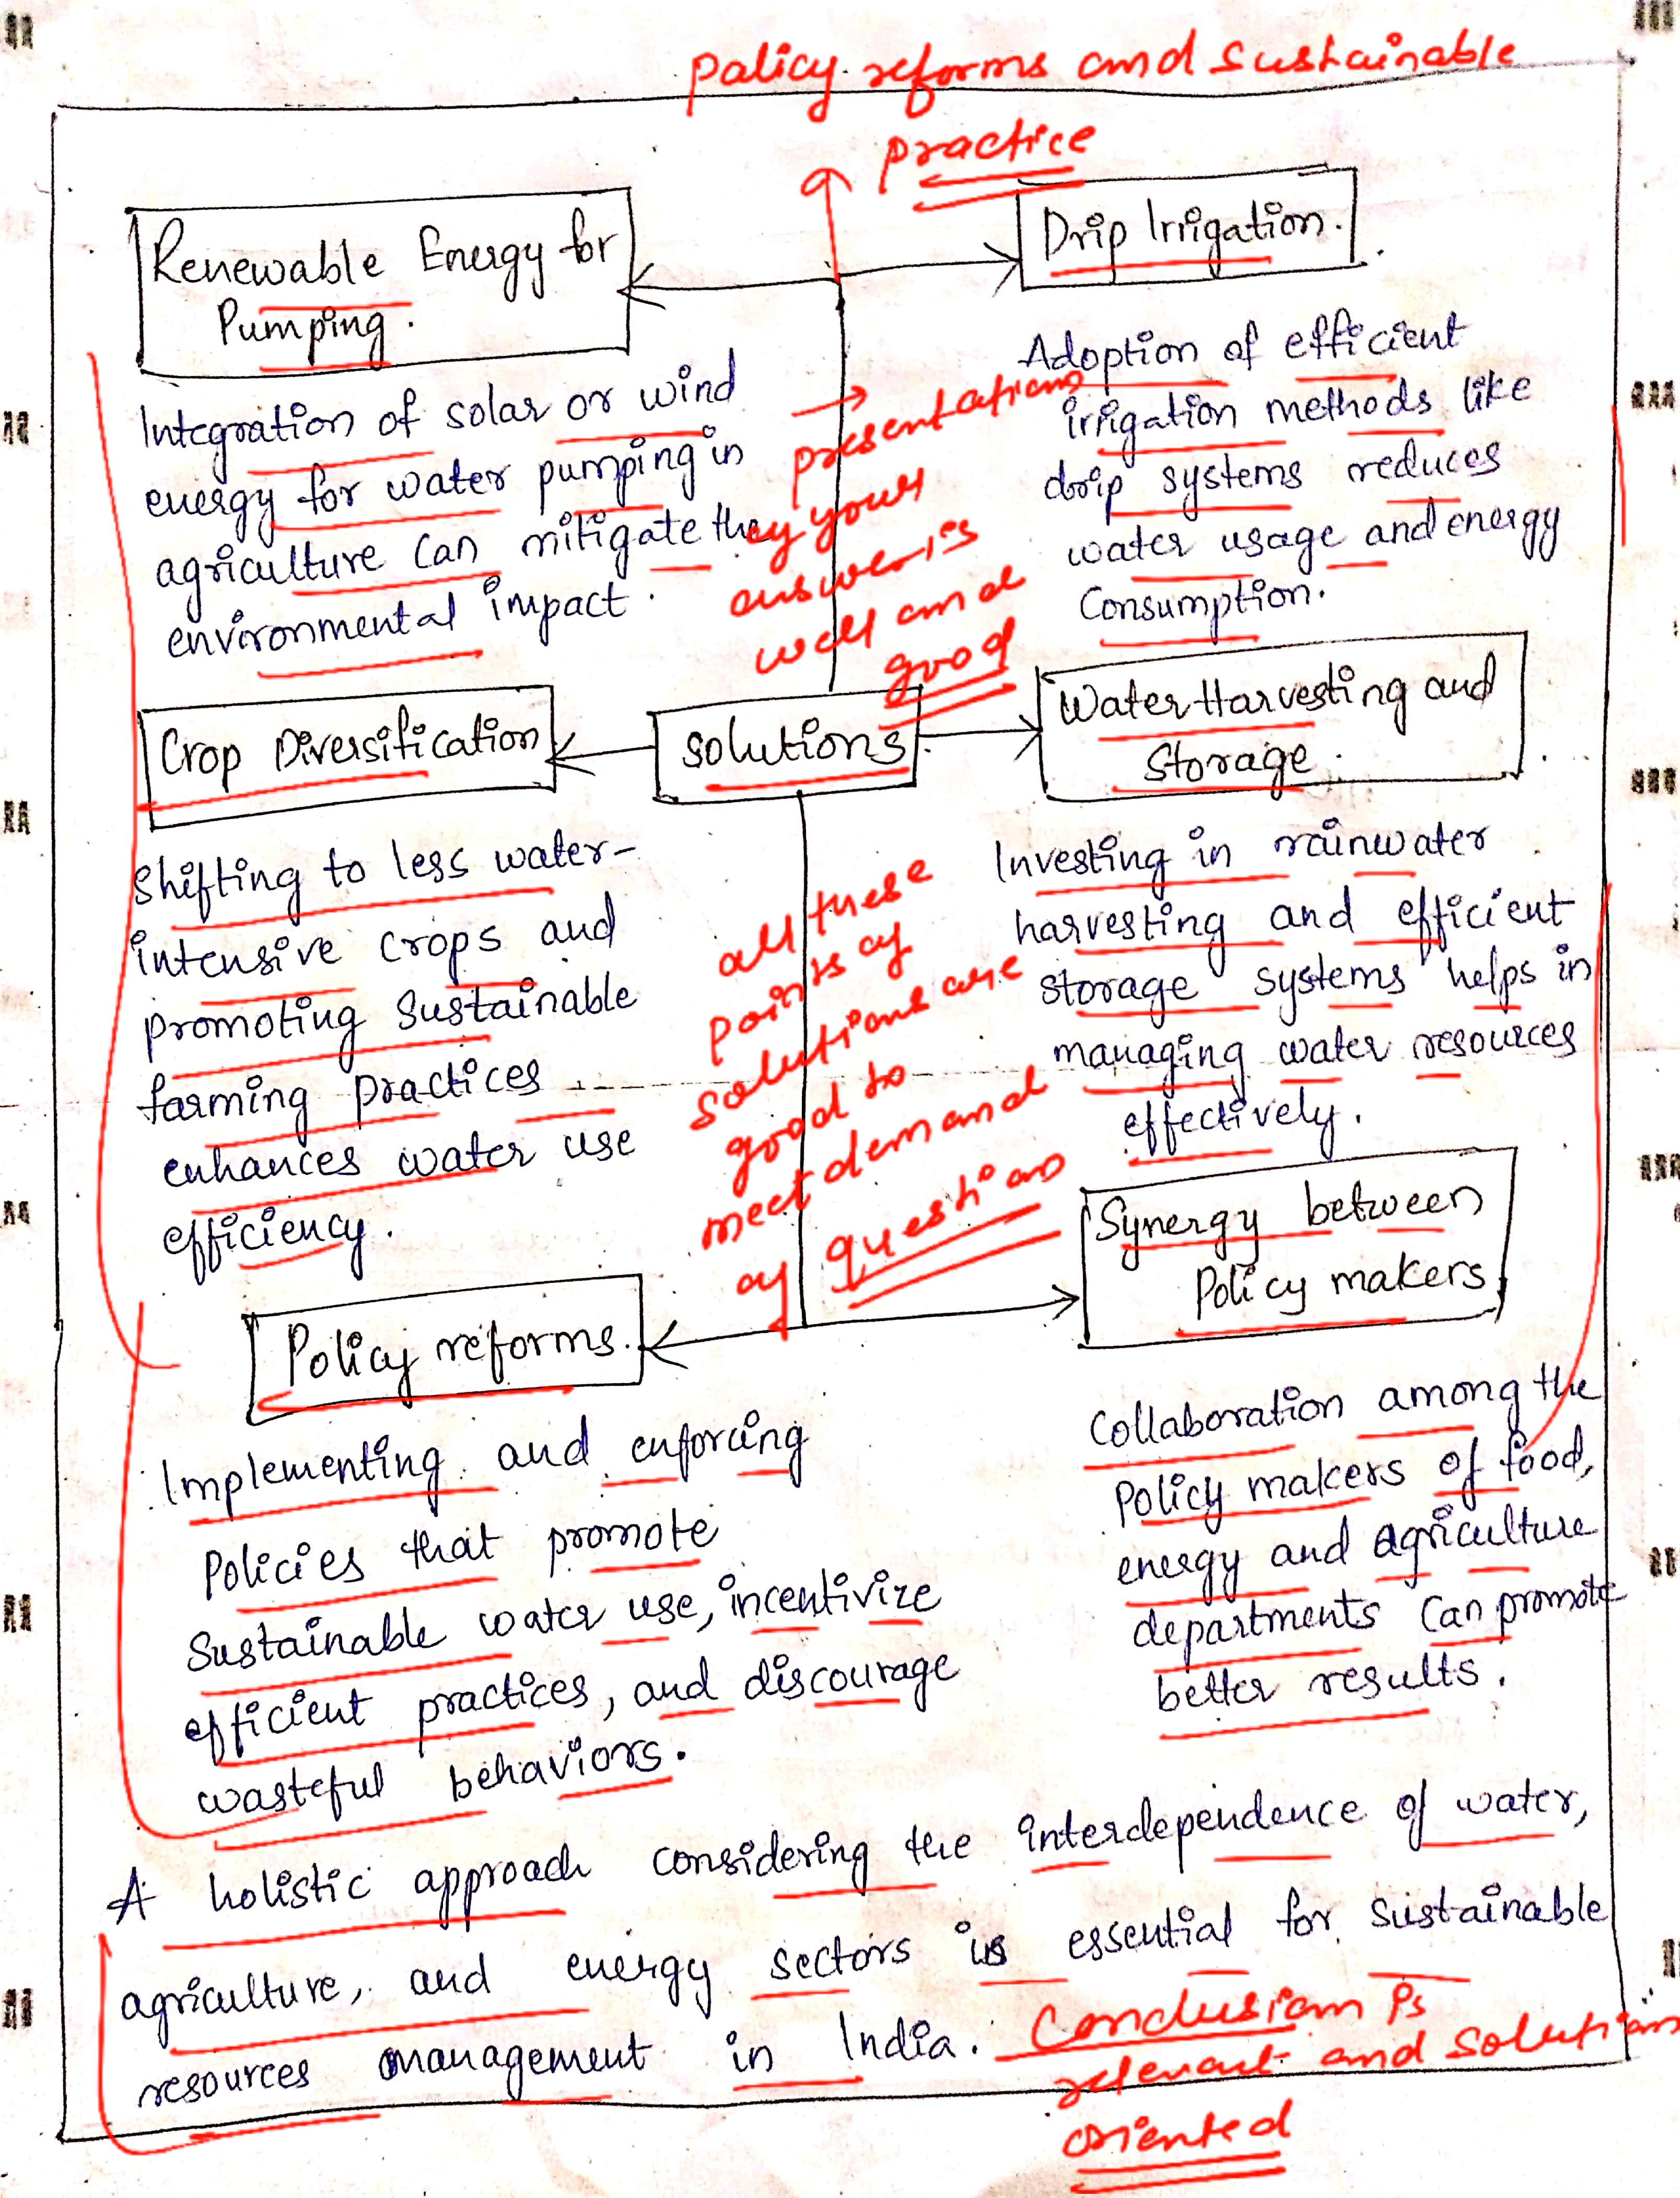 policy reforms and sustainable
practice
Renewable Energy for
Pumping.
Integration of solar or wind
energy for water pumping in
agriculture can mitigate the
environmental impact.
Drip Irrigation.
Adoption of efficient
irrigation methods like
drip systems reduces
water usage and energy
Consumption.
→
presentations
of your
answer is
well and
good
Crop Diversification
Solutions
Water Harvesting and
Storage.
Shifting to less water-
intensive crops and
promoting Sustainable
farming practices
enhances water use
efficiency.
all these
points of
solutions are
good to
meet demand
of questions
Investing in rainwater
harvesting and efficient
storage systems helps in
managing water resources
effectively.
Policy reforms.
Synergy between
Policy makers
Implementing and enforcing
Policies that promote
Sustainable water use, incentivize
efficient practices, and discourage
wasteful behaviors.
Collaboration among the
Policy makers of food,
energy and agriculture
departments can promote
better results.
A holistic approach considering the interdependence of water,
agriculture, and energy sectors is essential for sustainable
resources management in India.
Conclusion is
relevant and solution
oriented